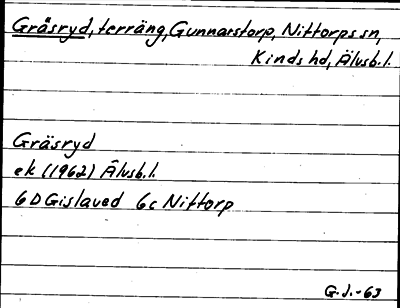 Gräsryd, terräng, Gunnarstorp, Nittorps sn,
Kinds hd, Älvsb.l.
Gräsryd
ek (1962) Älvsb.l.
6D Gislaved 6c Nittorp
G.J.-63